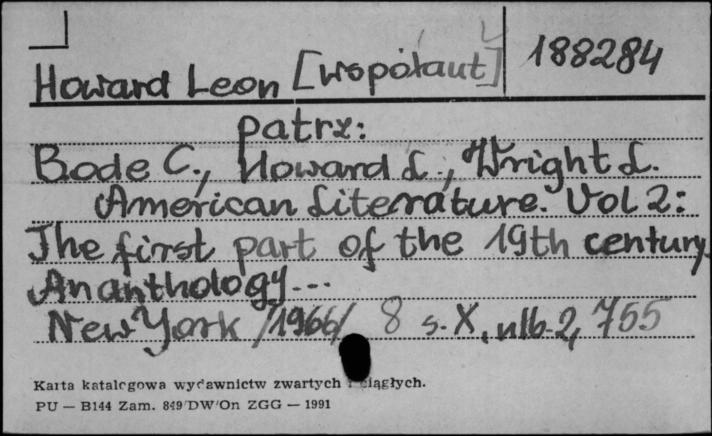 Howard Leon [współaut] 188284
patrz:
Bode C., Howard L., Wright L.
American Literature. Vol 2:
The first part of the 19th century.
An anthology...
New York /1966/ 8 s. X, nlb. 2, 755
Karta katalogowa wydawnictw zwartych i ciągłych.
PU — B144 Zam. 849/DW/On ZGG — 1991